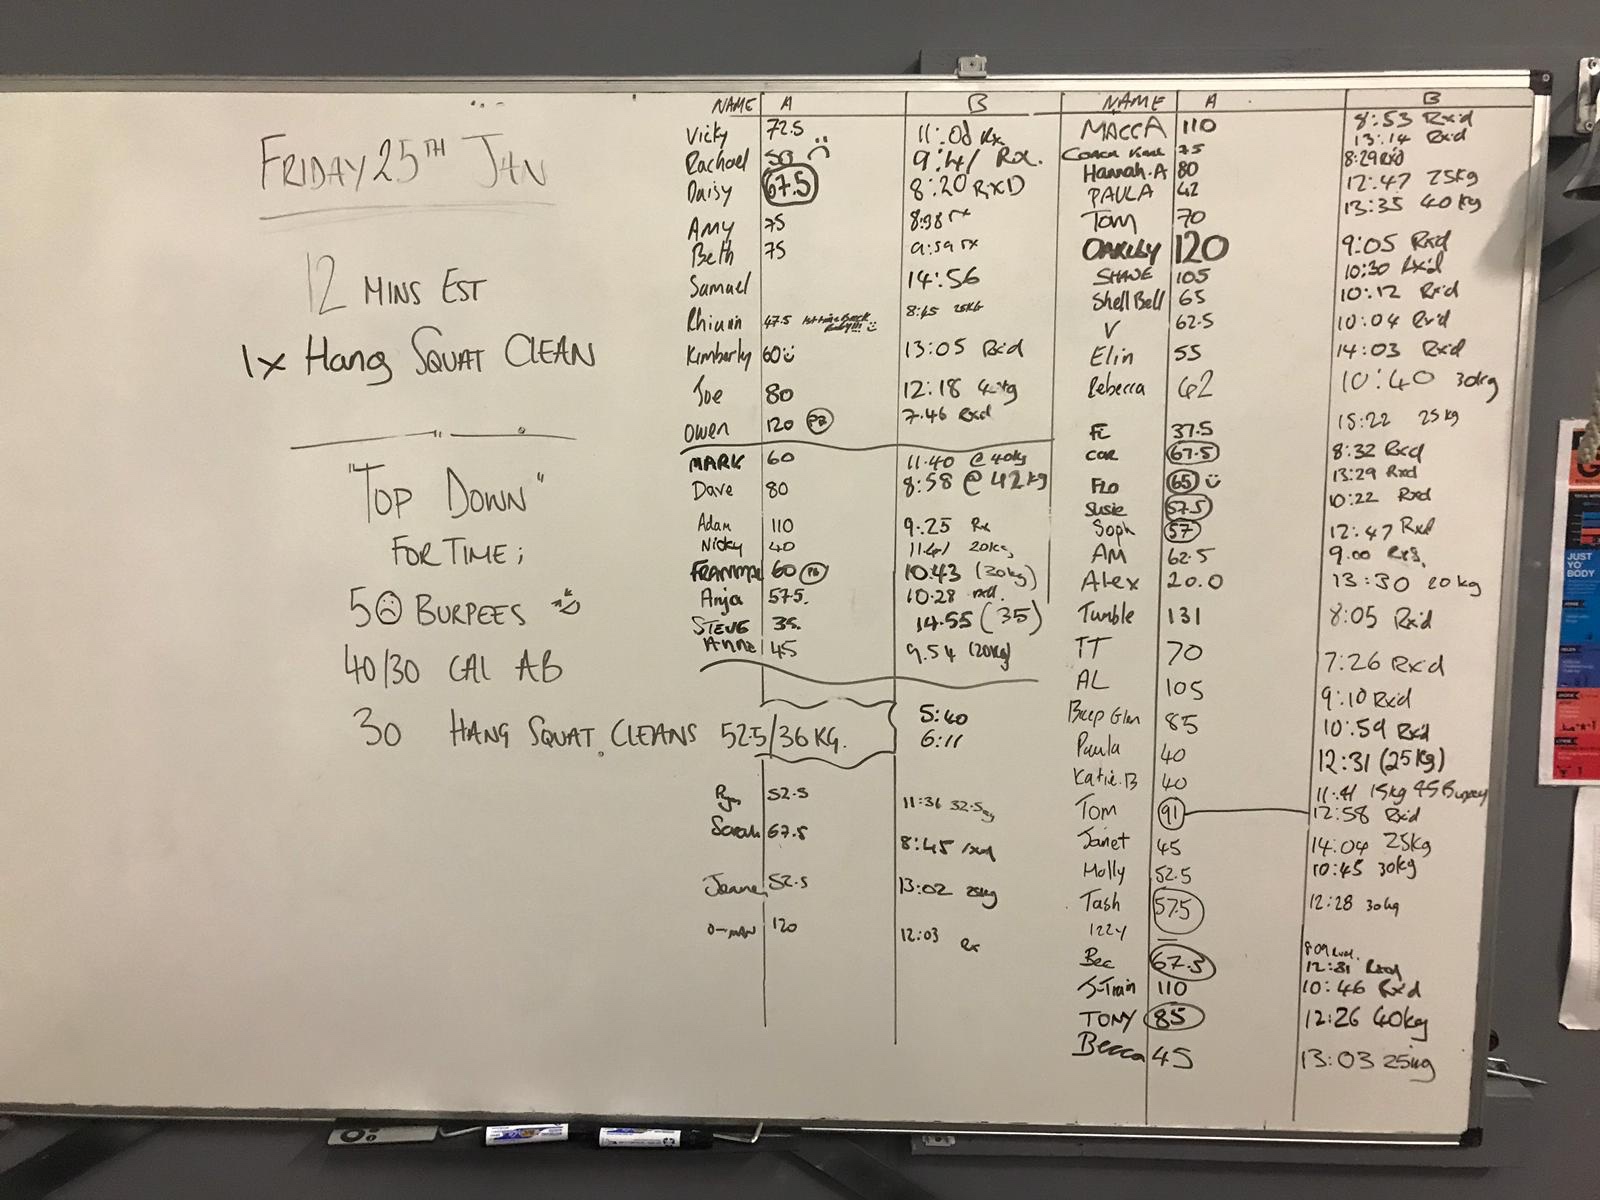 FRIDAY 25TH JAN
12 MINS EST
1x Hang SQUAT CLEAN
"TOP DOWN"
FOR TIME;
50 BURPEES
40/30 CAL AB
30 HANG SQUAT CLEANS 52.5/36 KG.
NAME A B
Vicky 72.5 11:08 Rx
Rachael 50 9:41 Rx.
Daisy 67.5 8:20 RXD
Amy 75 8:38 rx
Beth 75 9:59 rx
Samuel 14:56
Rhiann 47.5 8:45 25KG
Kimberly 60 13:05 Rx'd
Joe 80 12:18
Owen 120 PB 7.46 Rxd
MARK 60 11.40 @ 40kg
Dave 80 8:58 @ 42kg
Adam 110 9.25 Rx
Nicky 40 11.41 20kg
60 PB 10.43 (30kg)
Anja 57.5. 10:28 rxd.
STEVE 35. 14.55 (35)
Anne 45 9.54 (20kg)
5:40
6:11
52.5 11:36 32.5kg
Sarah 67.5 8:45 rxd
52.5 13:02 25kg
O-MAN 120 12:03 Rx
NAME A B
MACCA 110 8:53 Rx'd
COACH 75 13:14 Rx'd
Hannah.A 80 8:29 Rxd
PAULA 42 12:47 25kg
Tom 70 13:35 40kg
OAKLEY 120 9:05 Rx'd
SHANE 105 10:30 Rx'd
Shell Bell 65 10:12 Rx'd
V 62.5 10:04 Rx'd
Elin 55 14:03 Rx'd
Rebecca 42 10:40 30kg
37.5 15:22 25kg
67.5 8:32 Rxd
FLO 65 13:29 Rxd
Susie 57.5 10:22 Rxd
Soph 57 12:47 Rxd
AM 62.5 9.00
Alex 20.0 13:30 20kg
Tumble 131 8:05 Rx'd
TT 70 7:26 Rx'd
AL 105 9:10 Rxd
85 10:59 Rx'd
Paula 40 12:31 (25kg)
Katie.B 40 11:41 15kg 45 Burpees
Tom 91 12:58 Rx'd
Janet 45 14:04 25kg
Molly 52.5 10:45 30kg
Tash 57.5 12:28 30kg
Izzy 8:09 Rxd.
Bec 67.5 12:31 Rxd
J-Train 110 10:46 Rx'd
TONY 85 12:26 40kg
Becca 45 13:03 25kg
JUST
YO'
BODY